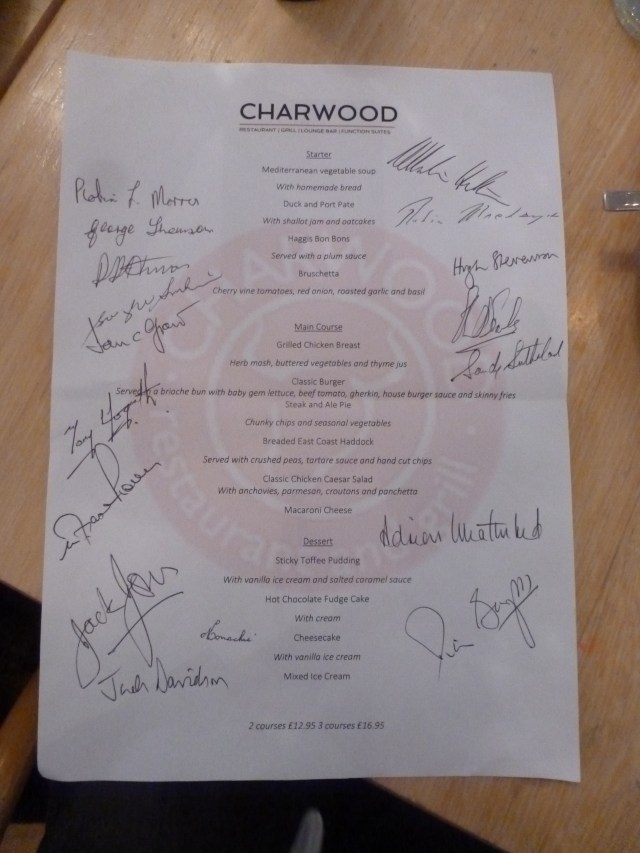 CHARWOOD
RESTAURANT | GRILL | LOUNGE BAR | FUNCTION SUITES
Starter
Mediterranean vegetable soup
With homemade bread
Duck and Port Pate
With shallot jam and oatcakes
Haggis Bon Bons
Served with a plum sauce
Bruschetta
Cherry vine tomatoes, red onion, roasted garlic and basil
Main Course
Grilled Chicken Breast
Herb mash, buttered vegetables and thyme jus
Classic Burger
Served in a brioche bun with baby gem lettuce, beef tomato, gherkin, house burger sauce and skinny fries
Steak and Ale Pie
Chunky chips and seasonal vegetables
Breaded East Coast Haddock
Served with crushed peas, tartare sauce and hand cut chips
Classic Chicken Caesar Salad
With anchovies, parmesan, croutons and panchetta
Macaroni Cheese
Dessert
Sticky Toffee Pudding
With vanilla ice cream and salted caramel sauce
Hot Chocolate Fudge Cake
With cream
Cheesecake
With vanilla ice cream
Mixed Ice Cream
2 courses £12.95 3 courses £16.95
CHARWOOD
restaurant and grill
Robin L. Morris
George Thomson
Hugh Stevenson
Sandy Sutherland
Tony
Jack
Davidson
Adrian